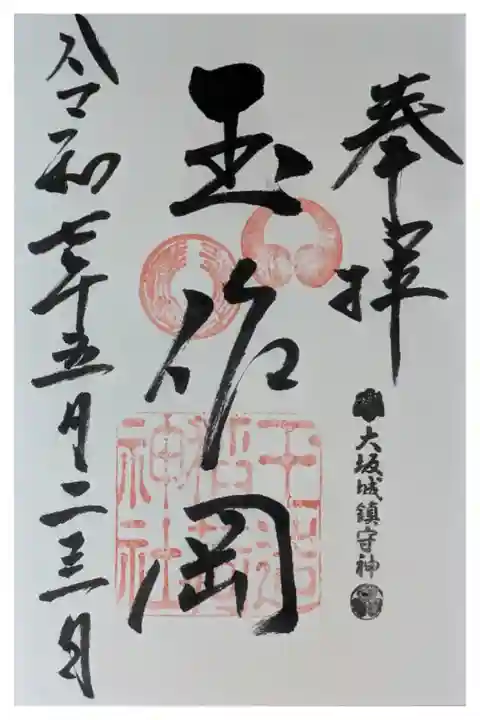 奉拝
大坂城鎮守神
玉作岡
玉造稲荷神社
令和七年五月二三日